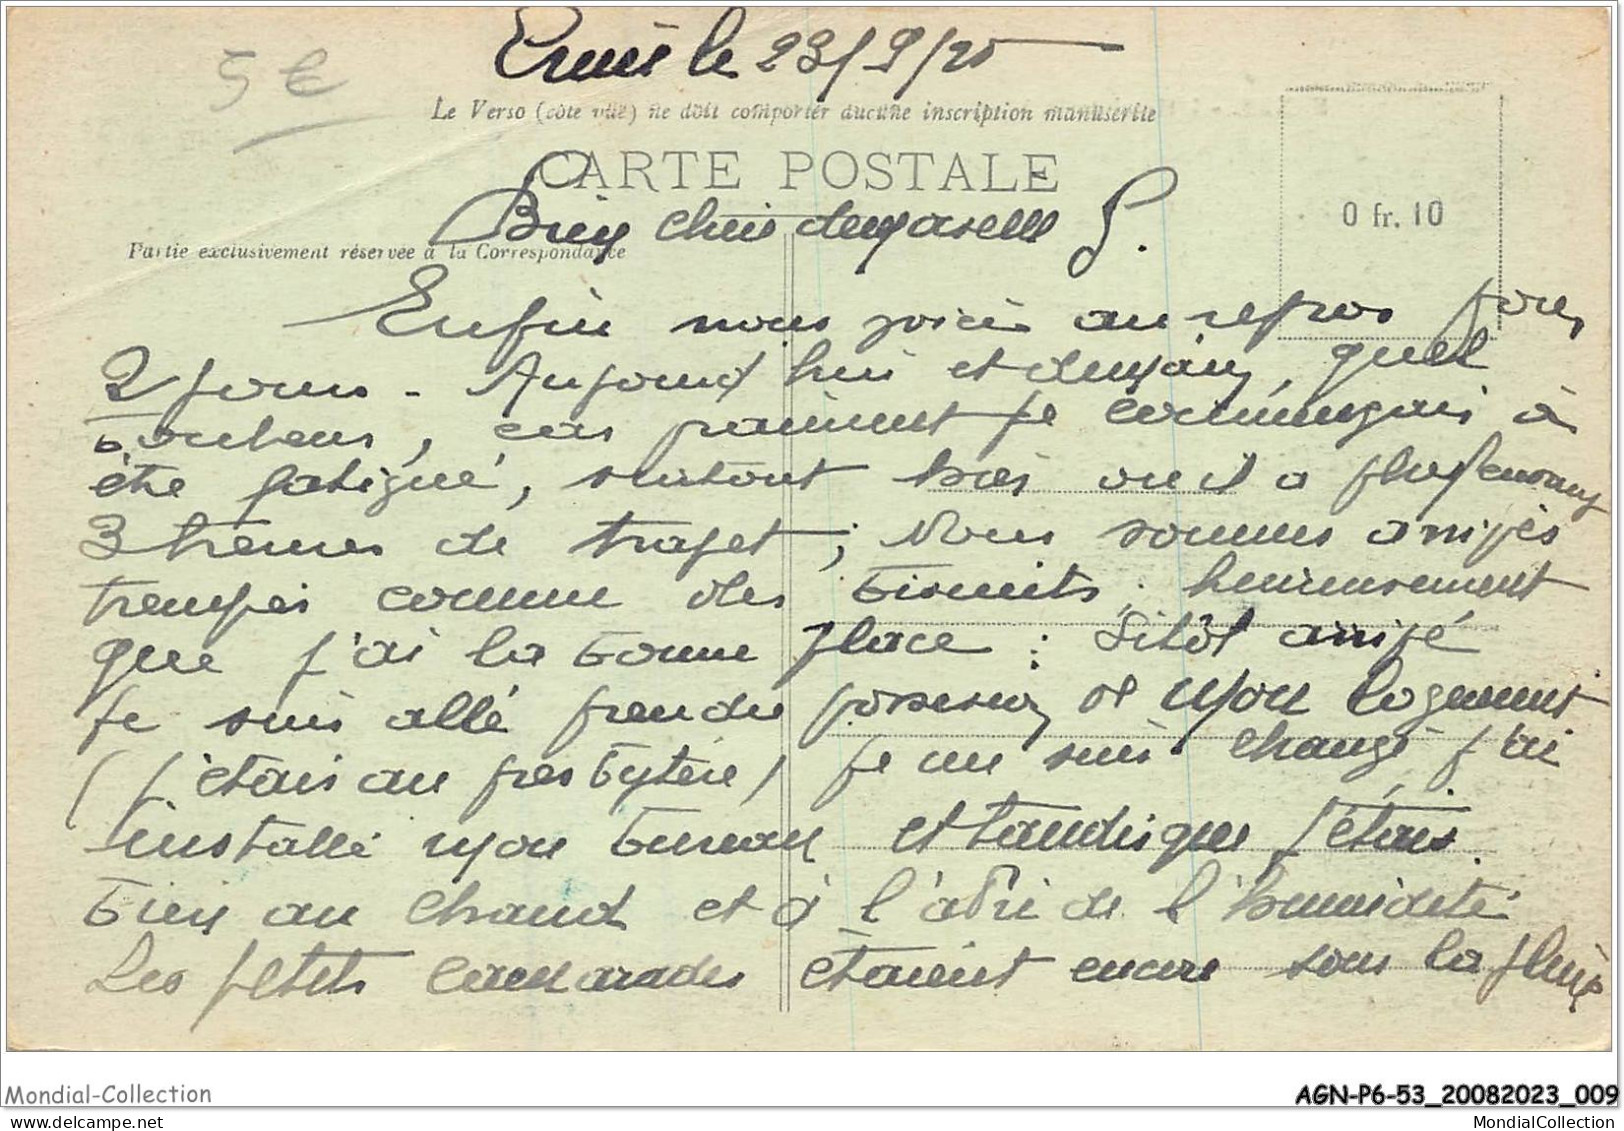 Ernée le 23/9/25
5€
Le Verso (côté vue) ne doit comporter aucune inscription manuscrite
CARTE POSTALE
0 fr. 10
Bien chère demoiselle S.
Partie exclusivement réservée à la Correspondance
Enfin nous voici au repos pour
2 jours - Aujourd'hui et demain, quel
bonheur, car vraiment je commençais à
être fatigué, surtout hier où il a plu pendant
3 heures de trajet; Nous sommes arrivés
trempés comme des biscuits; heureusement
que j'ai la bonne place : Sitôt arrivé
je suis allé prendre possession de mon logement
(j'étais au presbytère) je me suis changé, j'ai
installé mon bureau et tandis que j'étais
bien au chaud et à l'abri de l'humidité
Les petits camarades étaient encore sous la pluie
Mondial-Collection
AGN-P6-53_20082023_009
mondial-collection
MondialCollection